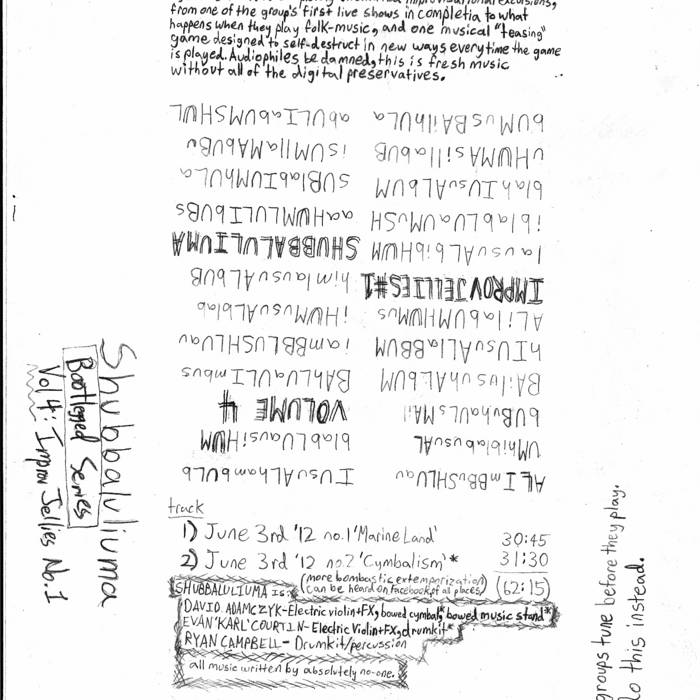 from one of the group's first live shows in completia to what
happens when they play folk-music, and one musical "teasing"
game designed to self-destruct in new ways everytime the game
is played. Audiophiles be damned, this is fresh music
without all of the digital preservatives.
ALImBBuSHLUau IUSuALhambULb
UMhiblabusuAL blabLUausiHUM
bUBuhAULsMAil VOLUME 4
BAilusuhALBUM BAhLUaULImbus
hIUsuALlaBBUM iamBBLUSHLUau
ALilabUMHUMus iHUMusuALblab
IMPROVJELLIES#1 himlausuALbUB
lausuALbibHUM SHUBBALULIUMA
iblabLUauMuSH aaHUMLULIbUBs
blahIUsuALBUM SUBlabIUMhULa
uHUMAsillabUB isUMllaMAbUBu
bUMusBAilhULa abULIabUMSHUL
Shubbaluliuma
Bootlegged Series
Vol 4: Improv Jellies No. 1
track
1) June 3rd '12 no.1 'Marine Land' 30:45
2) June 3rd '12 no.2 'Cymbalism'* 31:30
(more bombastic extemporization
can be heard on Facebook, of al places) (62:15)
SHUBBALULIUMA is:
DAVID ADAMCZYK-Electric violin+FX, bowed cymbal,* bowed music stand*
EVAN 'KARL' COURTIN-Electric Violin+FX, drumkit*
RYAN CAMPBELL-Drumkit/percussion
all music written by absolutely no-one.
groups tune before they play.
to this instead.